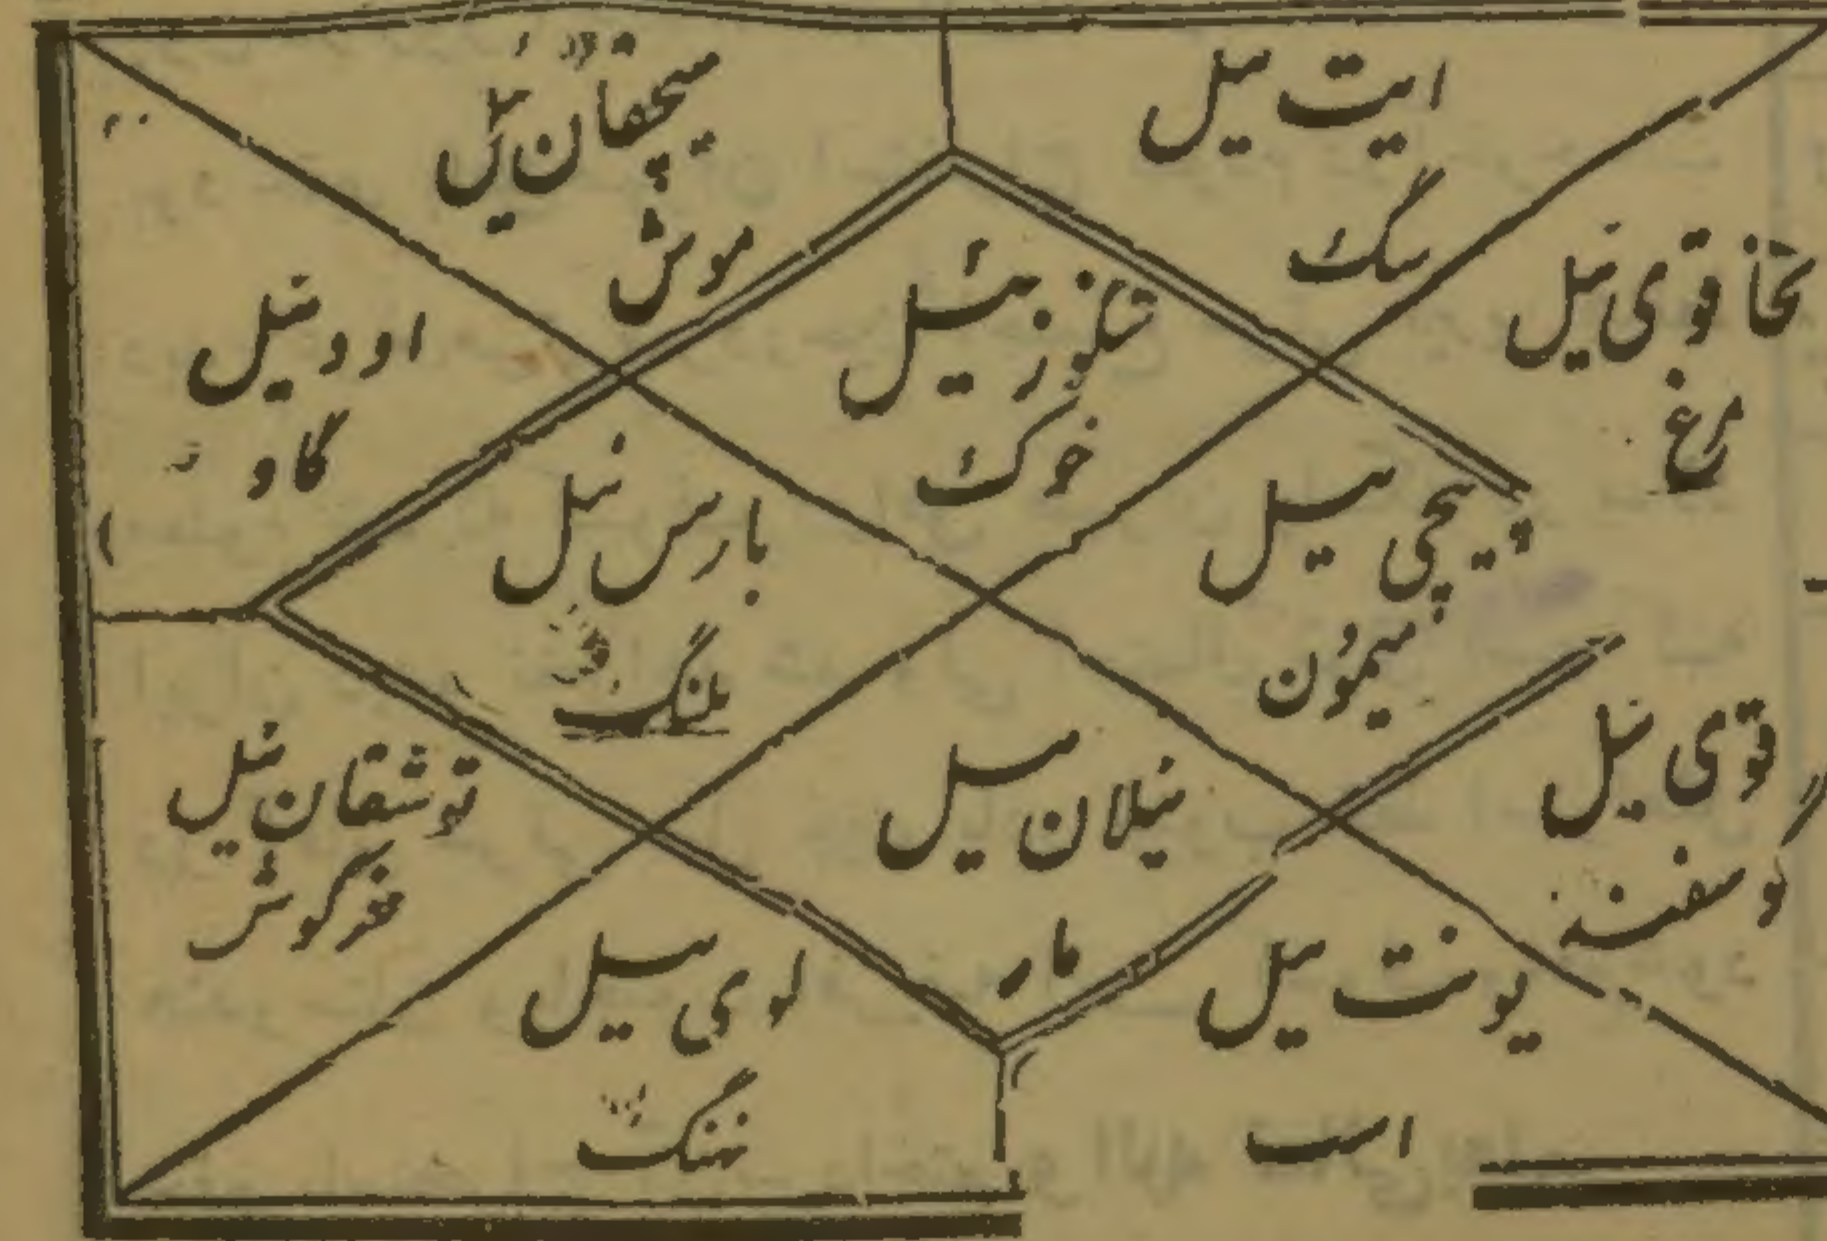 ایت ئیل
سگ
سیچقان ئیل
موش
تخاقوی ئیل
مرغ
تنکوز ئیل
خوک
اود ئیل
گاو
پیچی ئیل
میمون
بارس ئیل
پلنگ
قوی ئیل
گوسفند
ئیلان ئیل
مار
توشقان ئیل
خرگوش
یونت ئیل
اسب
لوی ئیل
نهنگ